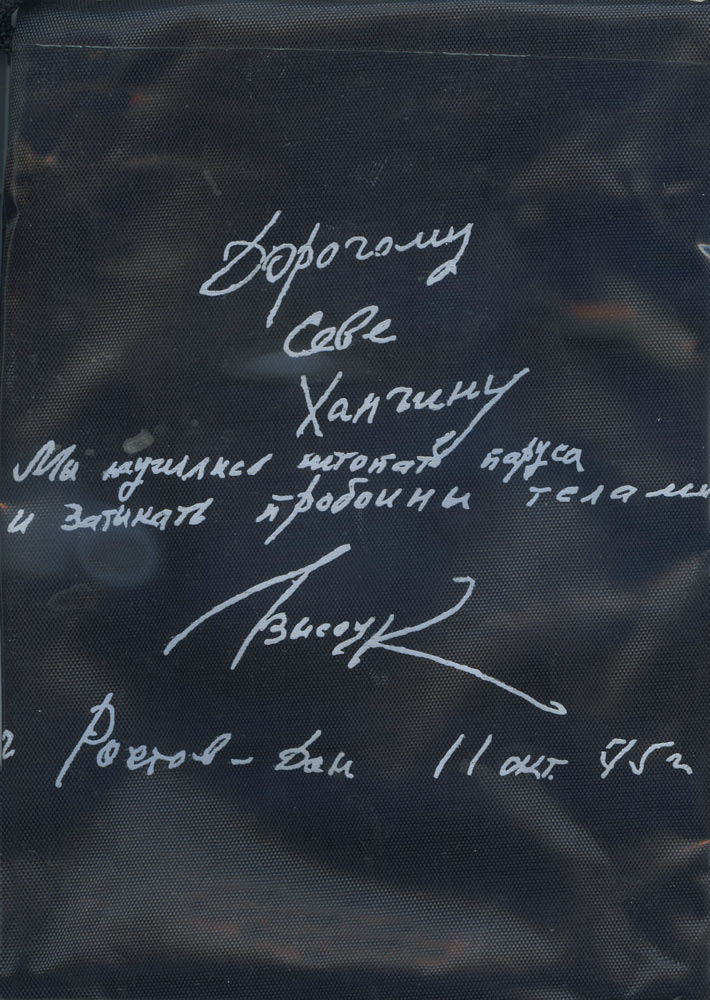 Дорогому
Севе
Ханчину
Мы научились штопать паруса
и затыкать пробоины телами
Ростов-Дон 11 окт. 75 г